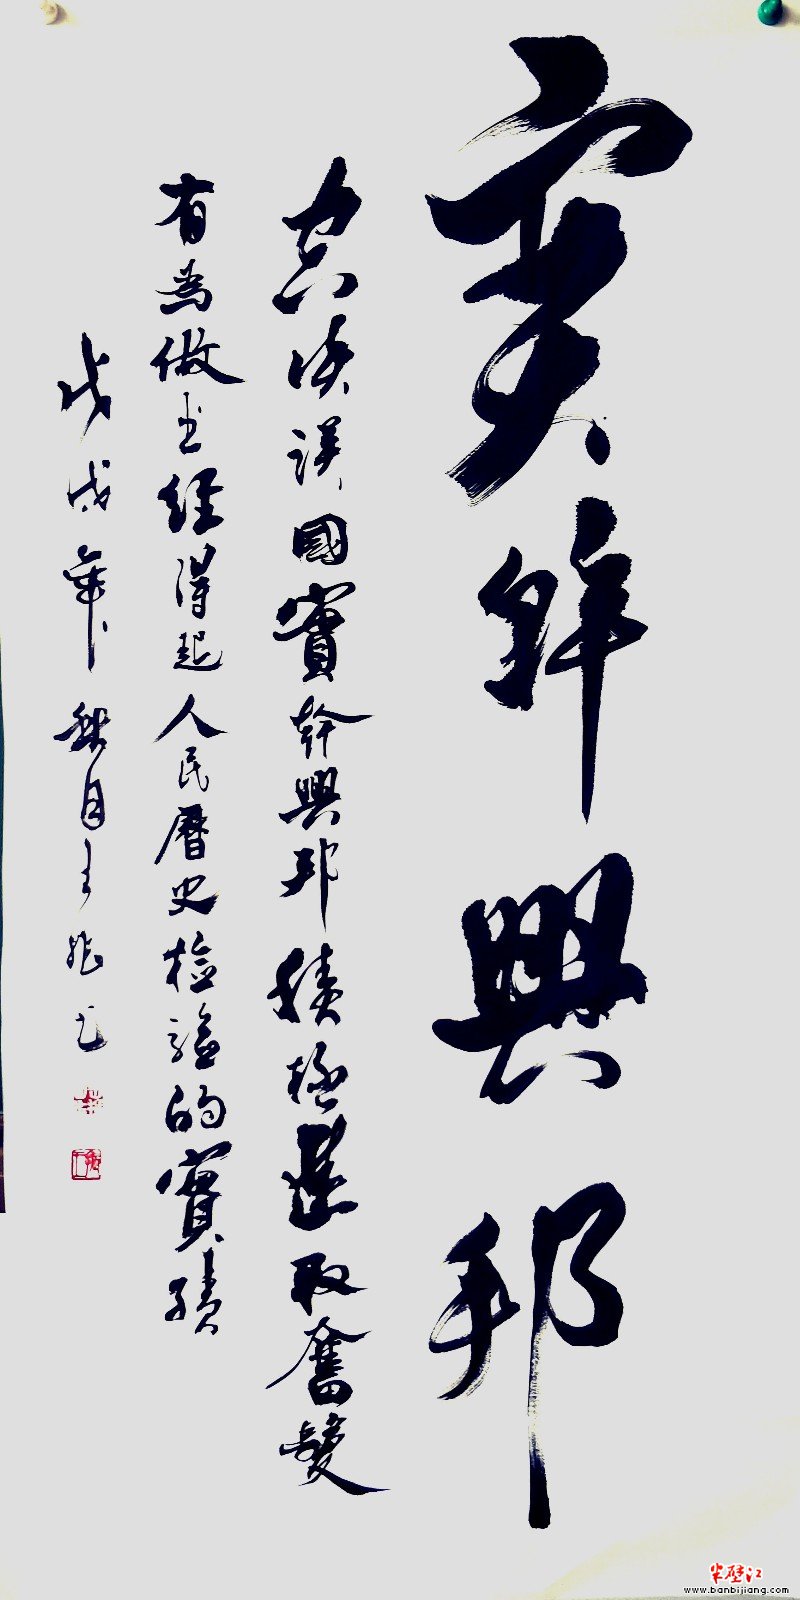 實幹興邦
空談誤國實幹興邦積極進取奮發
有為做出經得起人民曆史檢驗的實績
戊戌年秋月
半壁江
www.banbijiang.com